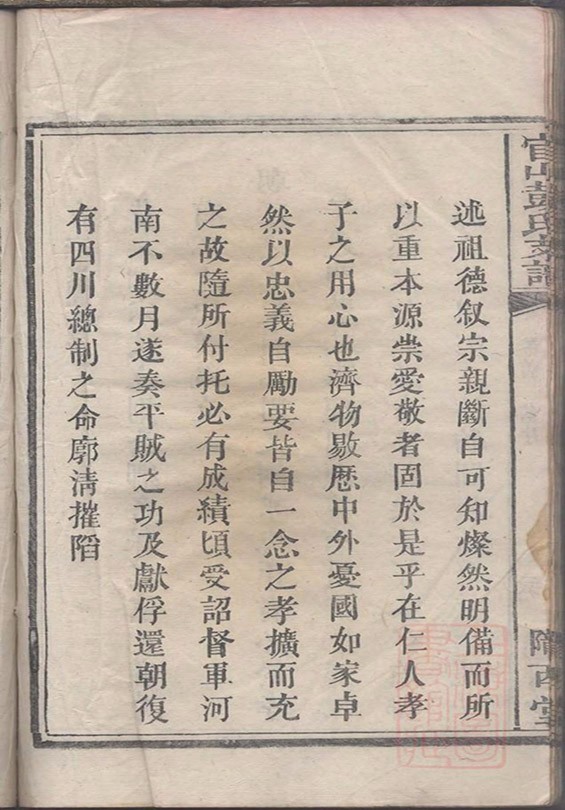 官山彭氏族譜
述祖德叙宗親斷自可知燦然明備而所
以重本源崇愛敬者固於是乎在仁人孝
子之用心也濟物敭歷中外憂國如家卓
然以忠義自勵要皆自一念之孝擴而充
之故隨所付托必有成績頃受詔督軍河
南不數月遂奏平賊之功及獻俘還朝復
有四川總制之命廓清摧陷
隴西堂